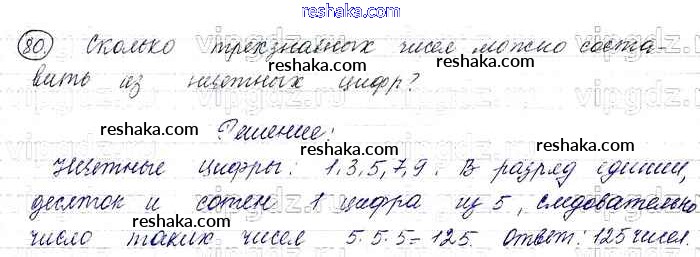 reshaka.com
80. Сколько трехзначных чисел можно соста-
reshaka.com
вить из нечетных цифр?
reshaka.com reshaka.com
Решение:
reshaka.com
Нечетные цифры: 1,3,5,7,9. В разряд единиц,
reshaka.com
десяток и сотен 1 цифра из 5, следовательно
reshaka.com
число таких чисел 5·5·5=125. Ответ: 125 чисел.